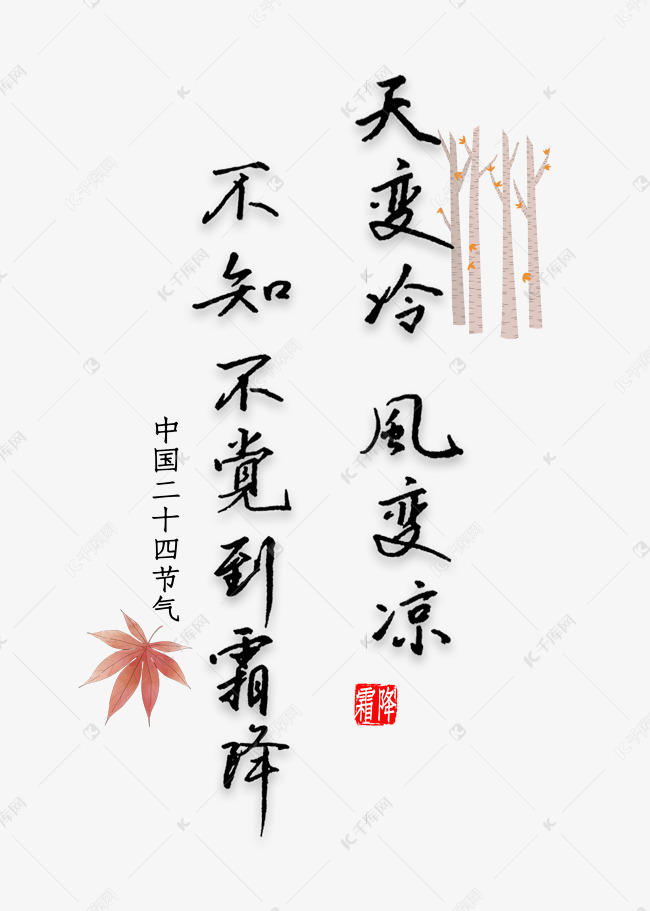 天变冷 風变凉
不知不觉到霜降
中国二十四节气
霜降
千库网